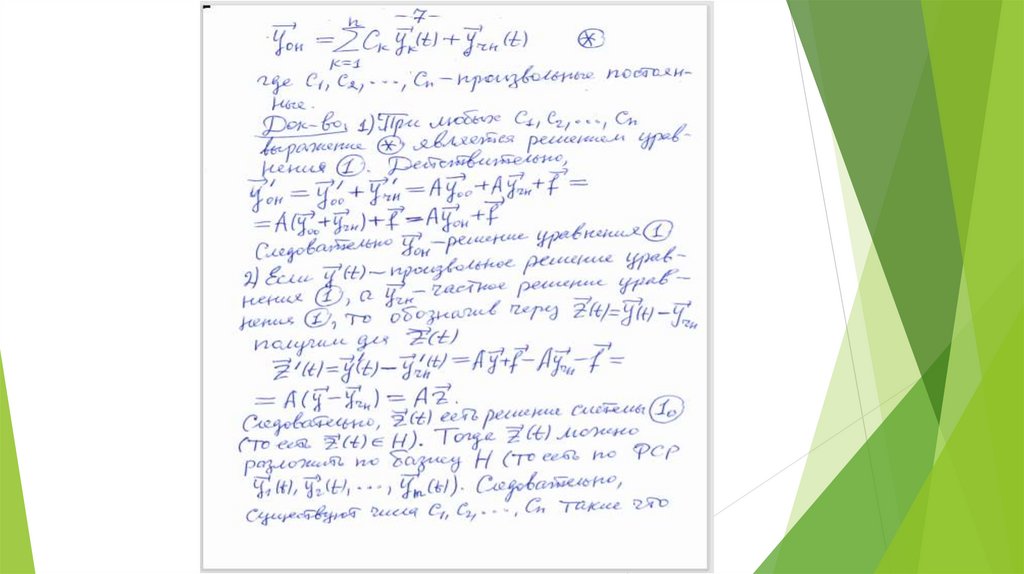 -7-
y⃗он = ∑ₖ₌₁ⁿ Cк y⃗к(t) + y⃗чн(t) (*)
где C₁, C₂, ..., Cn – произвольные постоян-
ные.
Док-во, 1) При любых C₁, C₂, ..., Cn
выражение (*) является решением урав-
нения (1). Действительно,
y⃗'он = y⃗'оо + y⃗'чн = Ay⃗оо + Ay⃗чн + f⃗ =
= A(y⃗оо + y⃗чн) + f⃗ = Ay⃗он + f⃗
Следовательно y⃗он – решение уравнения (1)
2) Если y⃗(t) – произвольное решение урав-
нения (1), а y⃗чн – частное решение урав-
нения (1), то обозначив через z⃗(t) = y⃗(t) – y⃗чн
получим для z⃗(t)
z⃗'(t) = y⃗'(t) – y⃗'чн(t) = Ay⃗ + f⃗ – Ay⃗чн – f⃗ =
= A(y⃗ – y⃗чн) = Az⃗.
Следовательно, z⃗(t) есть решение системы (1₀)
(то есть z⃗(t) ∈ H). Тогда z⃗(t) можно
разложить по базису H (то есть по ФСР
y⃗₁(t), y⃗₂(t), ..., y⃗m(t)). Следовательно,
существуют числа C₁, C₂, ..., Cn такие что